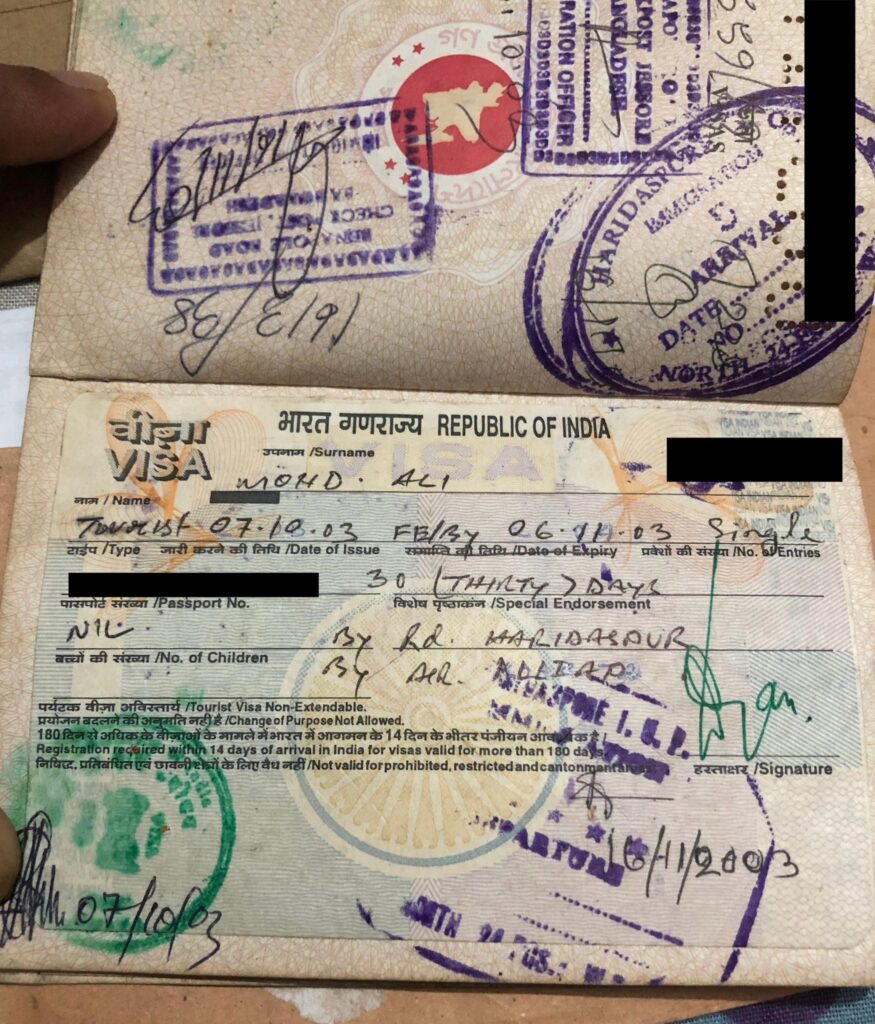 গণ
RATION OFFICER
BANGLADESH
POST JESSORE
16/11/03
BENAPOLE ROAD
CHECK POST, JESSORE
BANGLADESH
HARIDASPUR
IMMIGRATION
5
ARRIVAL
DATE
NO
NORTH 24
वीज़ा
VISA
भारत गणराज्य REPUBLIC OF INDIA
VISA
उपनाम /Surname
MOHD. ALI
नाम / Name
Tourist 07.10.03 FE/By 06.11.03 Single
टाईप /Type जारी करने की तिथि /Date of Issue समाप्ति की तिथि /Date of Expiry प्रवेशों की संख्या /No. of Entries
30 (THIRTY) DAYS
पासपोर्ट संख्या /Passport No. विशेष पृष्ठांकन /Special Endorsement
NIL By Rd. HARIDASPUR
बच्चों की संख्या /No. of Children
By AIR.
पर्यटक वीज़ा अविस्तार्य /Tourist Visa Non-Extendable.
प्रयोजन बदलने की अनुमति नहीं है /Change of Purpose Not Allowed.
180 दिन से अधिक के वीज़ाओं के मामले में भारत में आगमन के 14 दिन के भीतर पंजीयन आवश्यक है।
Registration required within 14 days of arrival in India for visas valid for more than 180 days
निषिद्ध, प्रतिबंधित एवं छावनी क्षेत्रों के लिए वैध नहीं /Not valid for prohibited, restricted and cantonment areas.
हस्ताक्षर /Signature
DEPARTURE
16/11/2003
07/10/03
NORTH 24 PGS.